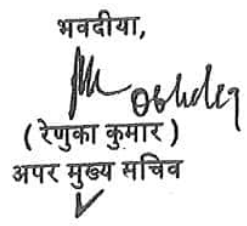 भवदीया,
( रेणुका कुमार )
अपर मुख्य सचिव